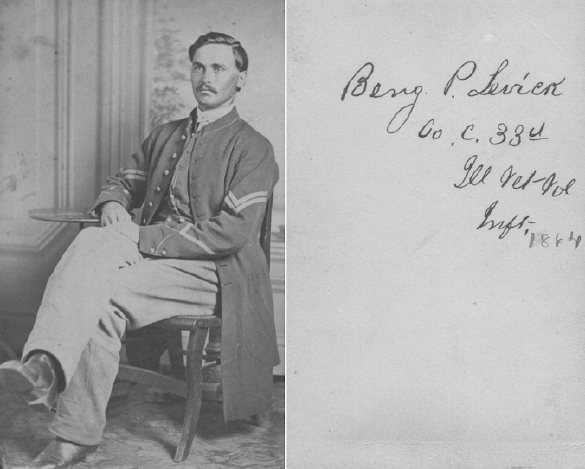 Benj. P. Levick
Co. C. 33d
Ill Vet Vol
Inft,
1864